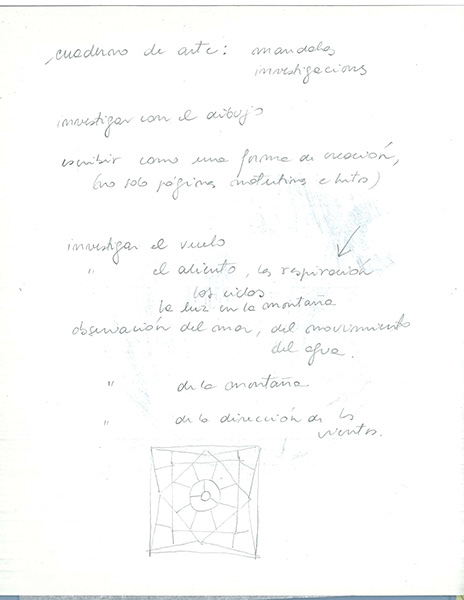 cuaderno de arte: mandalas
investigacions
investigar con el dibujo
escribir como una forma de creación,
(no solo páginas matutinas e hitos)
investigar el vuelo
" el aliento, la respiración
los ciclos
la luz en la montaña
observación del mar, del movimiento
del agua.
" de la montaña
" de la dirección de los
vientos.